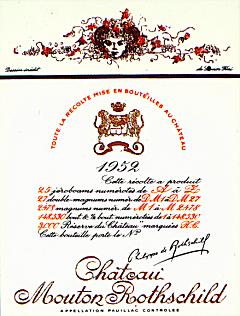 Dessin inédit
de Léonor Fini
TOUTE LA RÉCOLTE MISE EN BOUTEILLES AU CHÂTEAU
1952
Cette récolte a produit
25 jéroboams numérotés de A à Z
27 double-magnums numér. de DM1 à DM27
2478 magnums numér. de M1 à M2478
148.330 bout. & ½ bout. numérotées de 1 à 148.330
3000 "Réserve du Château" marquées R.C.
Cette bouteille porte le N°
Philippe de Rothschild
Château
Mouton Rothschild
APPELLATION PAUILLAC CONTROLÉE